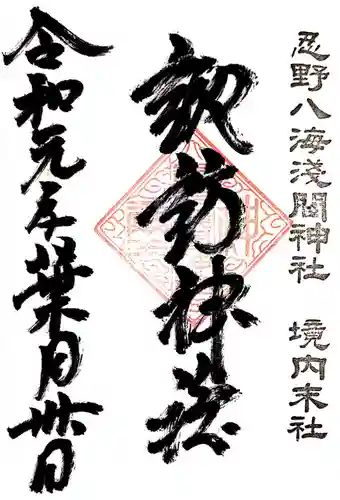 忍野八海淺間神社 境内末社
諏訪神社
令和元年葉月卅日